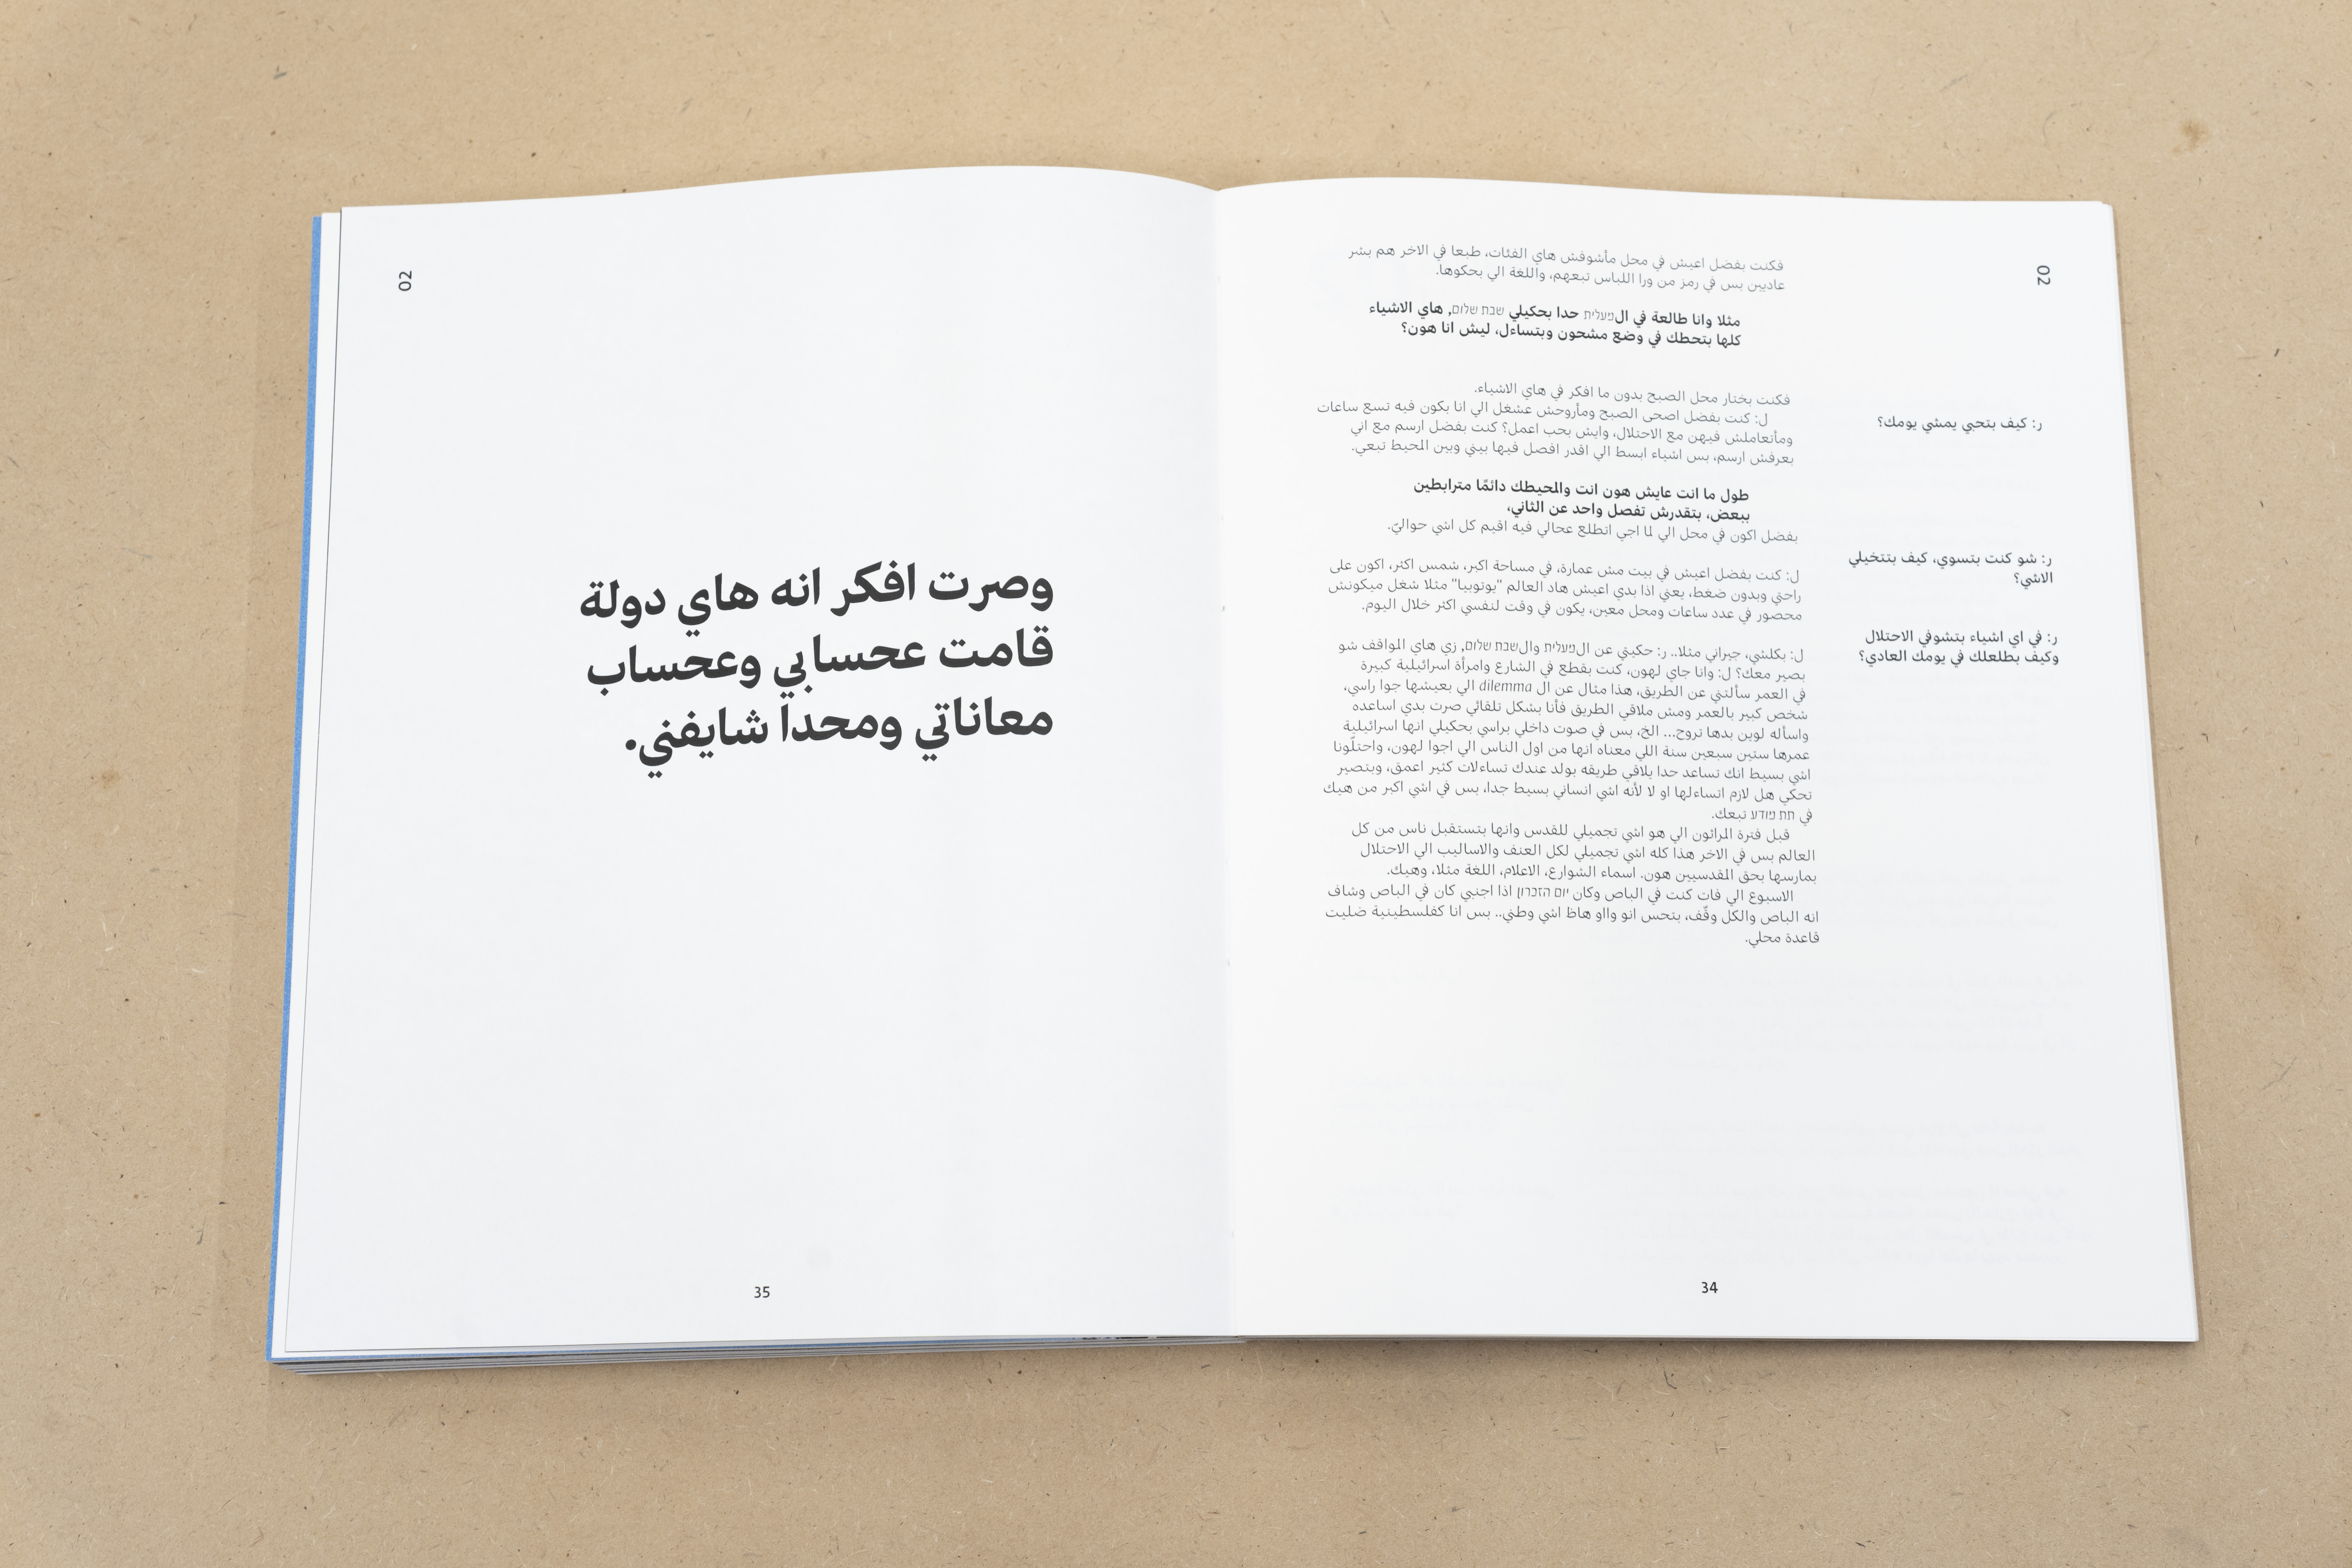 02
فكنت بفضل اعيش في محل مأشوفش هاي الفئات، طبعا في الاخر هم بشر
عاديين بس في رمز من ورا اللباس تبعهم، واللغة الي بحكوها.
مثلا وانا طالعة في الמעלית حدا بحكيلي שבת שלום, هاي الاشياء
كلها بتحطك في وضع مشحون وبتساءل، ليش انا هون؟
فكنت بختار محل الصبح بدون ما افكر في هاي الاشياء.
ر: كيف بتحبي يمشي يومك؟
ل: كنت بفضل اصحى الصبح ومأروحش عشغل الي انا بكون فيه تسع ساعات
ومأتعاملش فيهن مع الاحتلال، وايش بحب اعمل؟ كنت بفضل ارسم مع اني
بعرفش ارسم، بس اشياء ابسط الي اقدر افصل فيها بيني وبين المحيط تبعي.
طول ما انت عايش هون انت والمحيطك دائمًا مترابطين
ببعض، بتقدرش تفصل واحد عن الثاني،
بفضل اكون في محل الي لما اجي اتطلع عحالي فيه اقيم كل اشي حواليّ.
ر: شو كنت بتسوي، كيف بتتخيلي
الاشي؟
ل: كنت بفضل اعيش في بيت مش عمارة، في مساحة اكبر، شمس اكثر، اكون على
راحتي وبدون ضغط، يعني اذا بدي اعيش هاد العالم "يوتوبيا" مثلا شغل ميكونش
محصور في عدد ساعات ومحل معين، يكون في وقت لنفسي اكثر خلال اليوم.
ر: في اي اشياء بتشوفي الاحتلال
وكيف بطلعلك في يومك العادي؟
ل: بكلشي، جيراني مثلا.. ر: حكيتي عن الמעלית والשבת שלום, زي هاي المواقف شو
بصير معك؟ ل: وانا جاي لهون، كنت بقطع في الشارع وامرأة اسرائيلية كبيرة
في العمر سألتني عن الطريق، هذا مثال عن ال dilemma الي بعيشها جوا راسي،
شخص كبير بالعمر ومش ملاقي الطريق فأنا بشكل تلقائي صرت بدي اساعده
واسأله لوين بدها تروح... الخ، بس في صوت داخلي براسي بحكيلي انها اسرائيلية
عمرها ستين سبعين سنة اللي معناه انها من اول الناس الي اجوا لهون، واحتلّونا
اشي بسيط انك تساعد حدا يلاقي طريقه بولد عندك تساءلات كثير اعمق، وبتصير
تحكي هل لازم اتساءلها او لا لأنه اشي انساني بسيط جدا، بس في اشي اكبر من هيك
في תת מודע تبعك.
قبل فترة المراثون الي هو اشي تجميلي للقدس وانها بتستقبل ناس من كل
العالم بس في الاخر هذا كله اشي تجميلي لكل العنف والاساليب الي الاحتلال
بمارسها بحق المقدسيين هون. اسماء الشوارع، الاعلام، اللغة مثلا، وهيك.
الاسبوع الي فات كنت في الباص وكان יום הזכרון اذا اجنبي كان في الباص وشاف
انه الباص والكل وقّف، بتحس انو وااو هاظ اشي وطني.. بس انا كفلسطينية ضليت
قاعدة محلي.
34
02
وصرت افكر انه هاي دولة
قامت عحسابي وعحساب
معاناتي ومحدا شايفني.
35